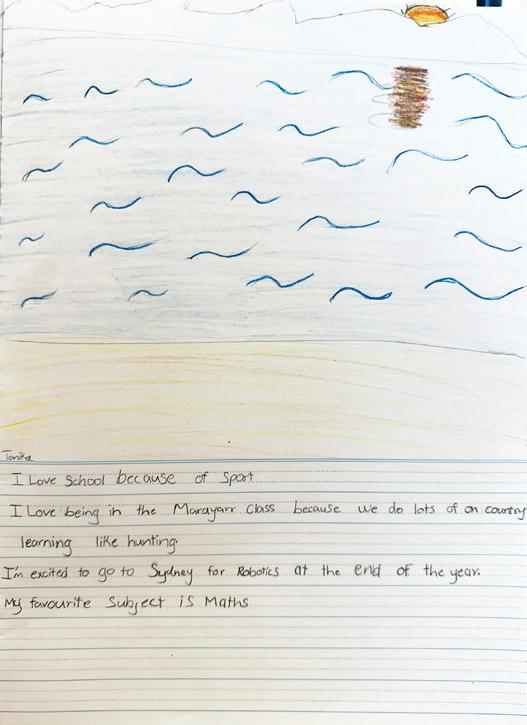 Tanika
I Love School because of Sport
I Love being in the Marayarr Class because we do lots of on country
learning like hunting.
I'm excited to go to Sydney for Robotics at the end of the year.
My favourite Subject is Maths